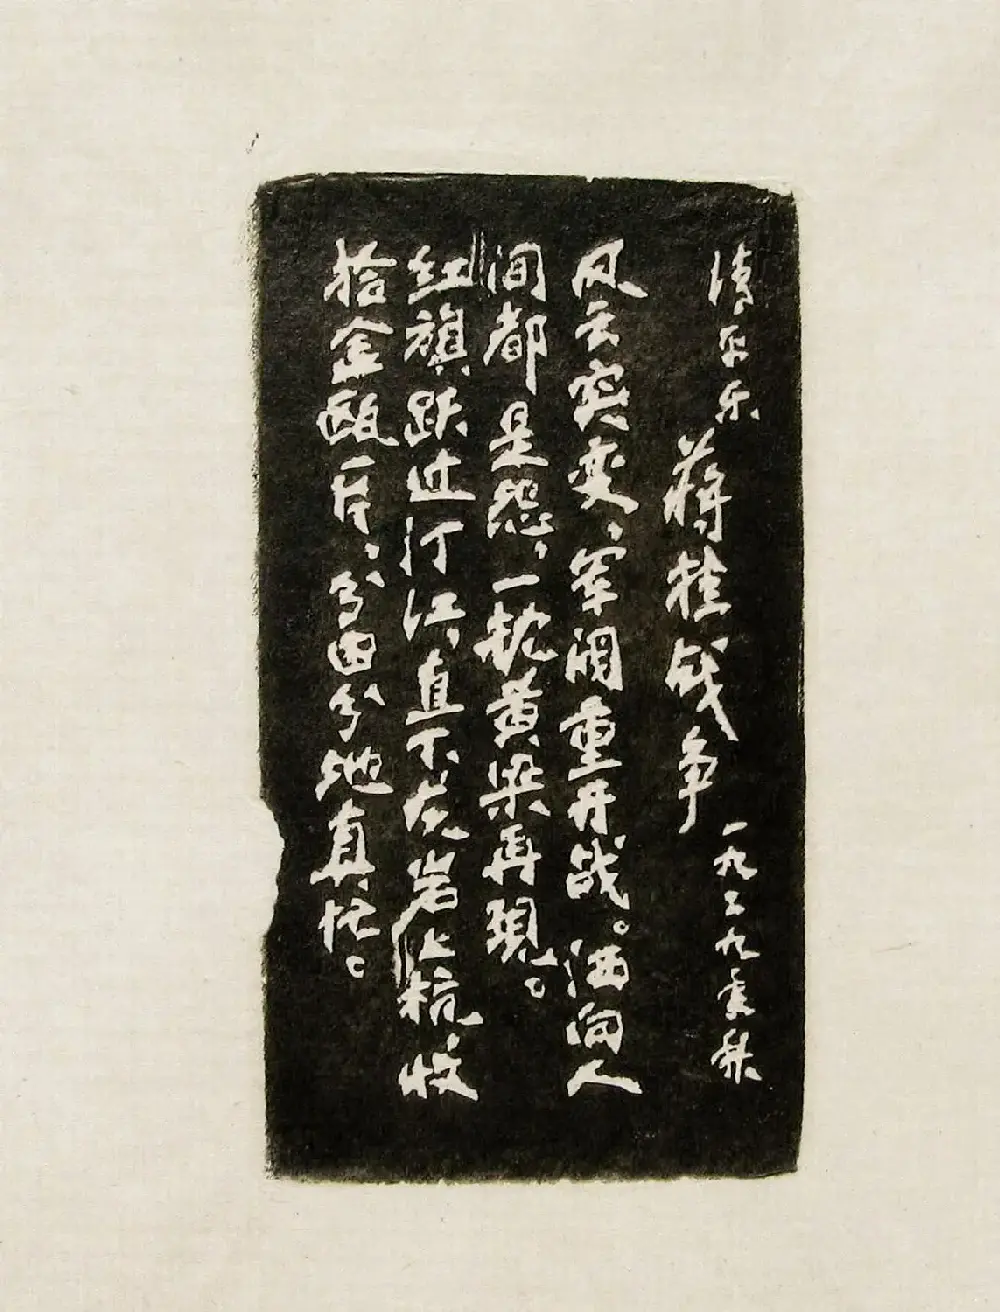 清平乐 蒋桂战争 一九二九年秋
风云突变、军阀重开战。洒向人
间都是怨，一枕黄粱再现。
红旗跃过汀江、直下龙岩上杭收
拾金瓯一片、分田分地真忙。